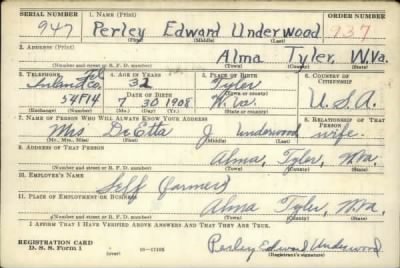 SERIAL NUMBER 1. NAME (Print) ORDER NUMBER
947 Perley Edward Underwood 937
(First) (Middle) (Last)
2. ADDRESS (Print)
Alma Tyler, W.Va.
(Number and street or R. F. D. number) (Town) (County) (State)
3. TELEPHONE 4. AGE IN YEARS 5. PLACE OF BIRTH 6. COUNTRY OF CITIZENSHIP
Inland Co. Tel 32 Tyler
DATE OF BIRTH (Town or county) U.S.A.
54F14 7 30 1908 W. Va.
(Exchange) (Number) (Mo.) (Day) (Yr.) (State or country)
7. NAME OF PERSON WHO WILL ALWAYS KNOW YOUR ADDRESS 8. RELATIONSHIP OF THAT PERSON
Mrs DeEtta J Underwood wife.
(Mr., Mrs., Miss) (First) (Middle) (Last)
9. ADDRESS OF THAT PERSON
Alma, Tyler, W.Va.
(Number and street or R. F. D. number) (Town) (County) (State)
10. EMPLOYER'S NAME
Self (farmer)
11. PLACE OF EMPLOYMENT OR BUSINESS
Alma Tyler, W.Va.
(Number and street or R. F. D. number) (Town) (County) (State)
I AFFIRM THAT I HAVE VERIFIED ABOVE ANSWERS AND THAT THEY ARE TRUE.
REGISTRATION CARD
D. S. S. Form 1 (over) 16-17105 Perley Edward Underwood
(Registrant's signature)